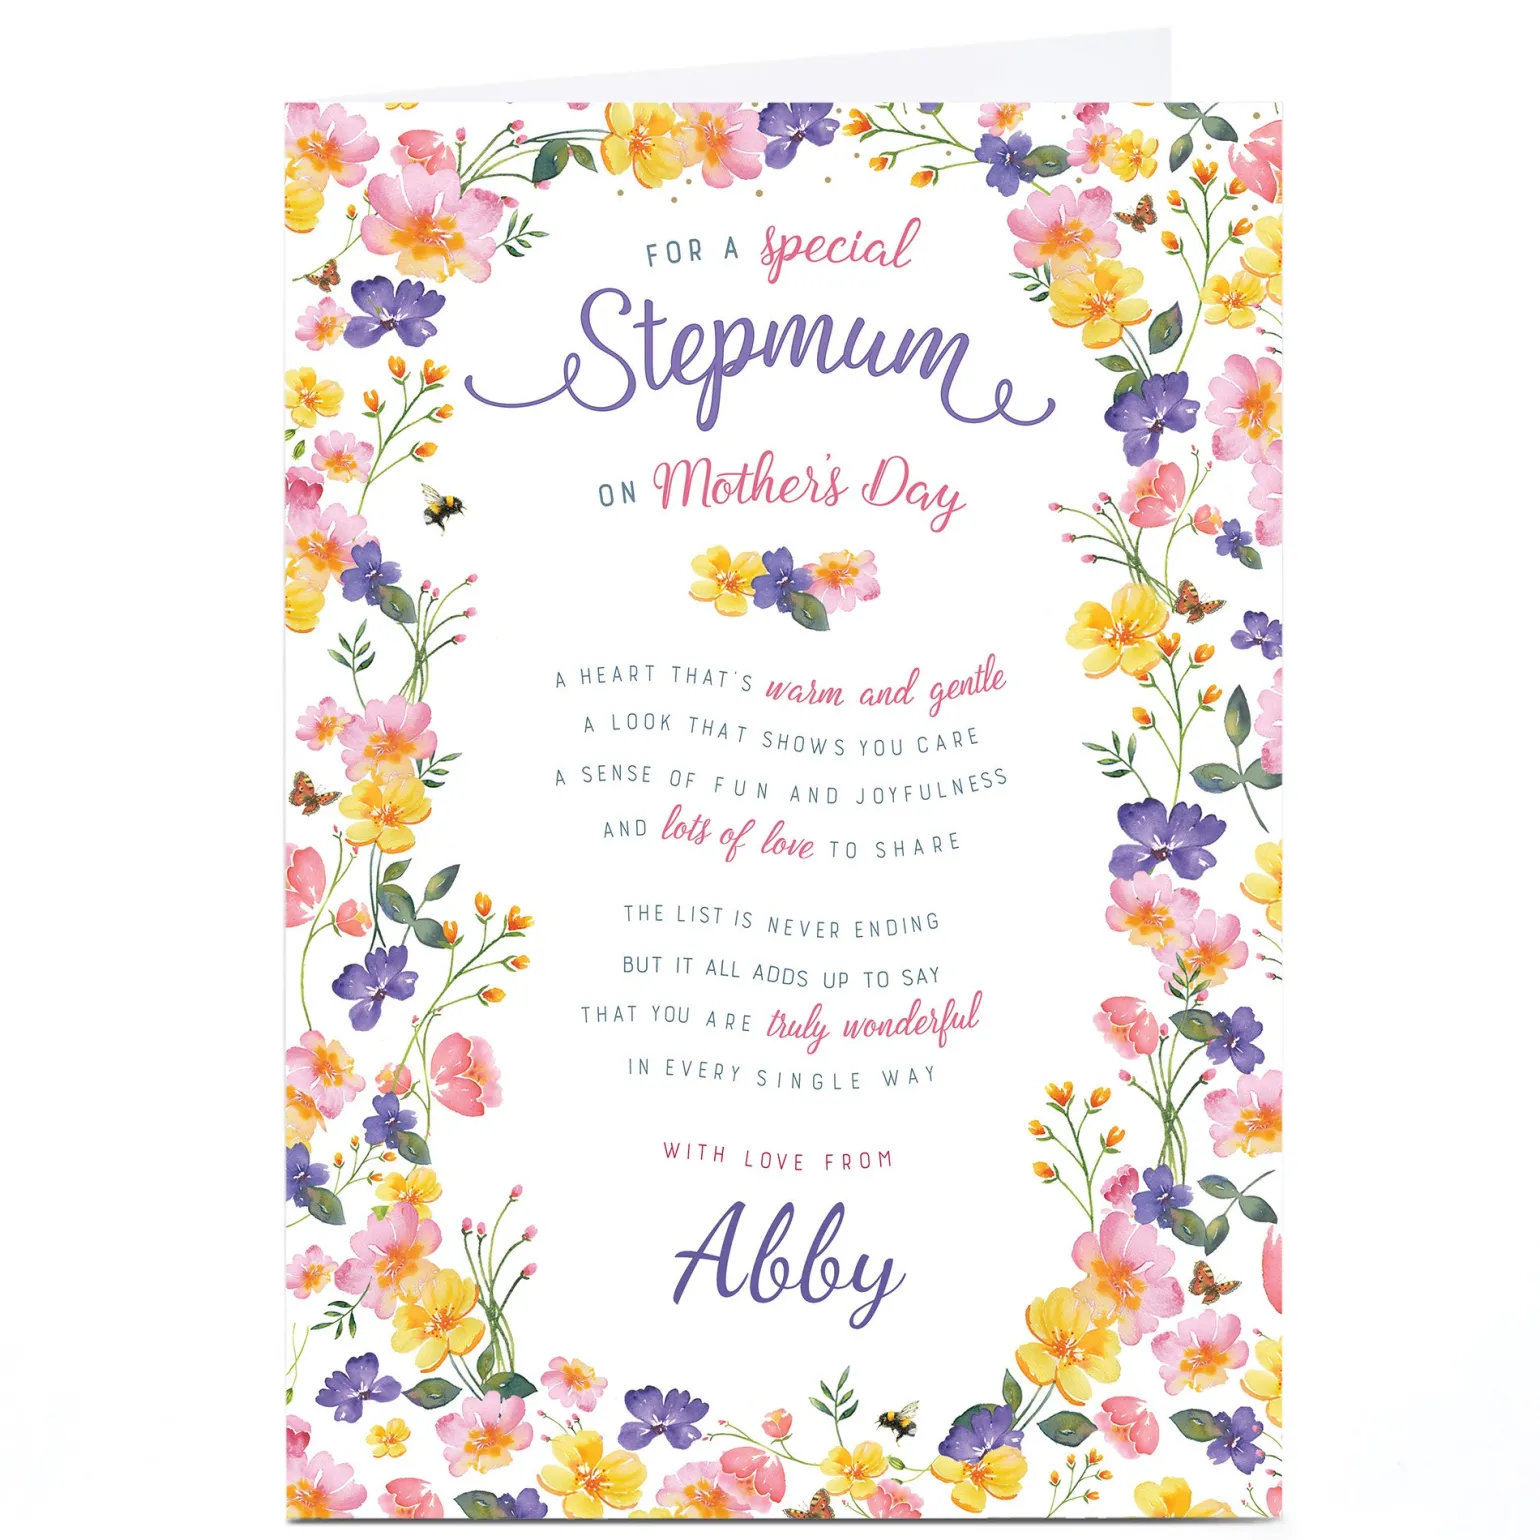 FOR A special
Stepmum
ON Mother's Day
A HEART THAT'S warm and gentle
A LOOK THAT SHOWS YOU CARE
A SENSE OF FUN AND JOYFULNESS
AND lots of love TO SHARE
THE LIST IS NEVER ENDING
BUT IT ALL ADDS UP TO SAY
THAT YOU ARE truly wonderful
IN EVERY SINGLE WAY
WITH LOVE FROM
Abby